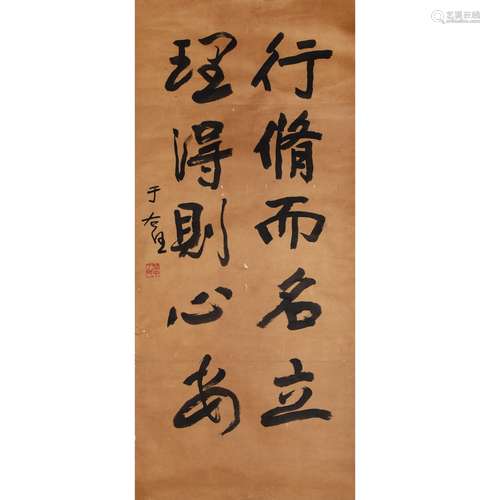 行脩而名立
理得則心安
于右任
艺买在线